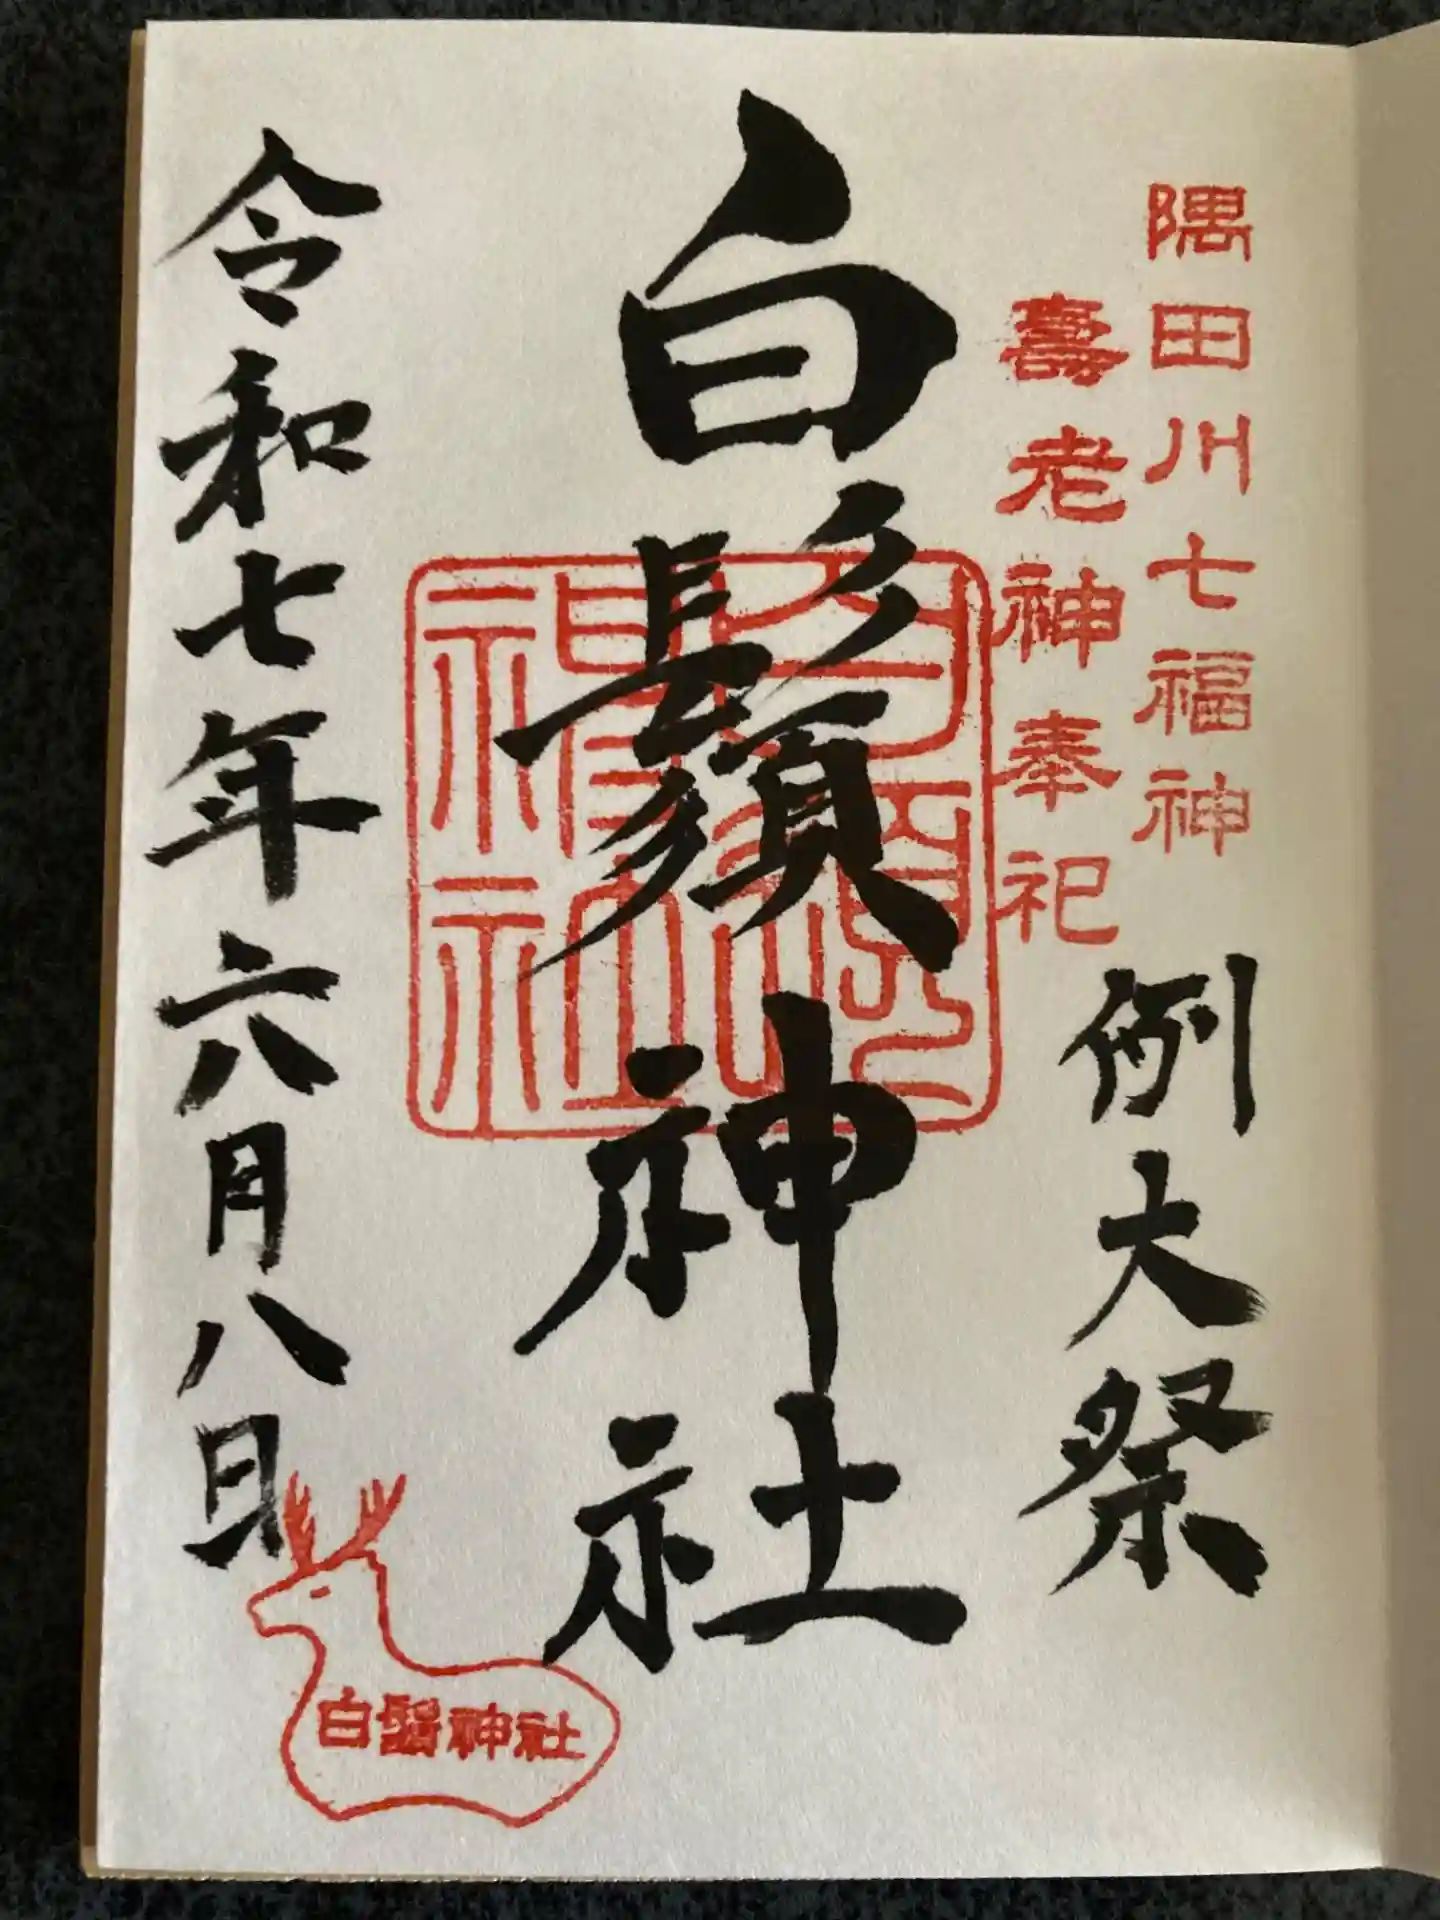 隅田川七福神
壽老神奉祀
例大祭
白鬚神社
白鬚神社
令和七年六月八日
白鬚神社